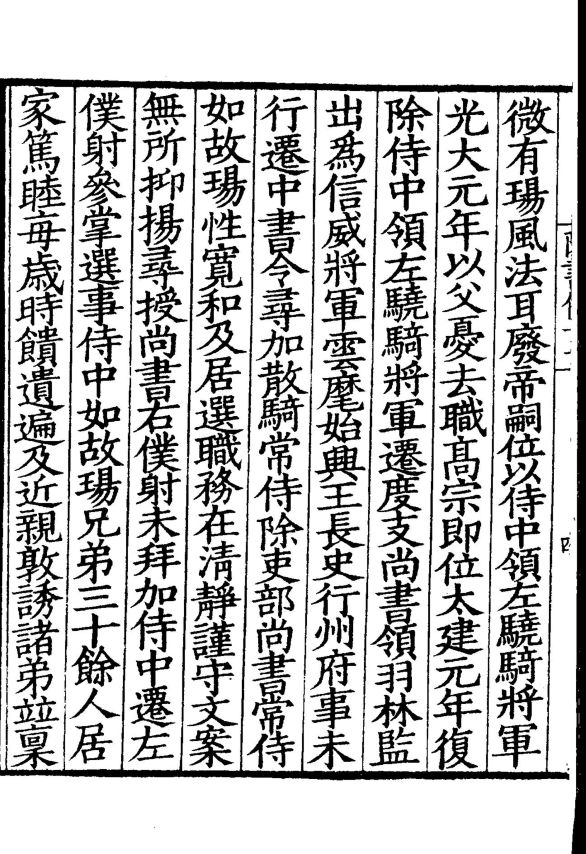 微有瑒風法耳廢帝嗣位以侍中領左驍騎將軍
光大元年以父憂去職髙宗即位太建元年復
除侍中領左驍騎將軍遷度支尚書領羽林監
出爲信威將軍雲麾始興王長史行州府事未
行遷中書令尋加散騎常侍除吏部尚書常侍
如故瑒性寛和及居選職務在清靜謹守文案
無所抑揚尋授尚書右僕射未拜加侍中遷左
僕射參掌選事侍中如故瑒兄弟三十餘人居
家篤睦毎歳時饋遺遍及近親敦誘諸弟竝禀